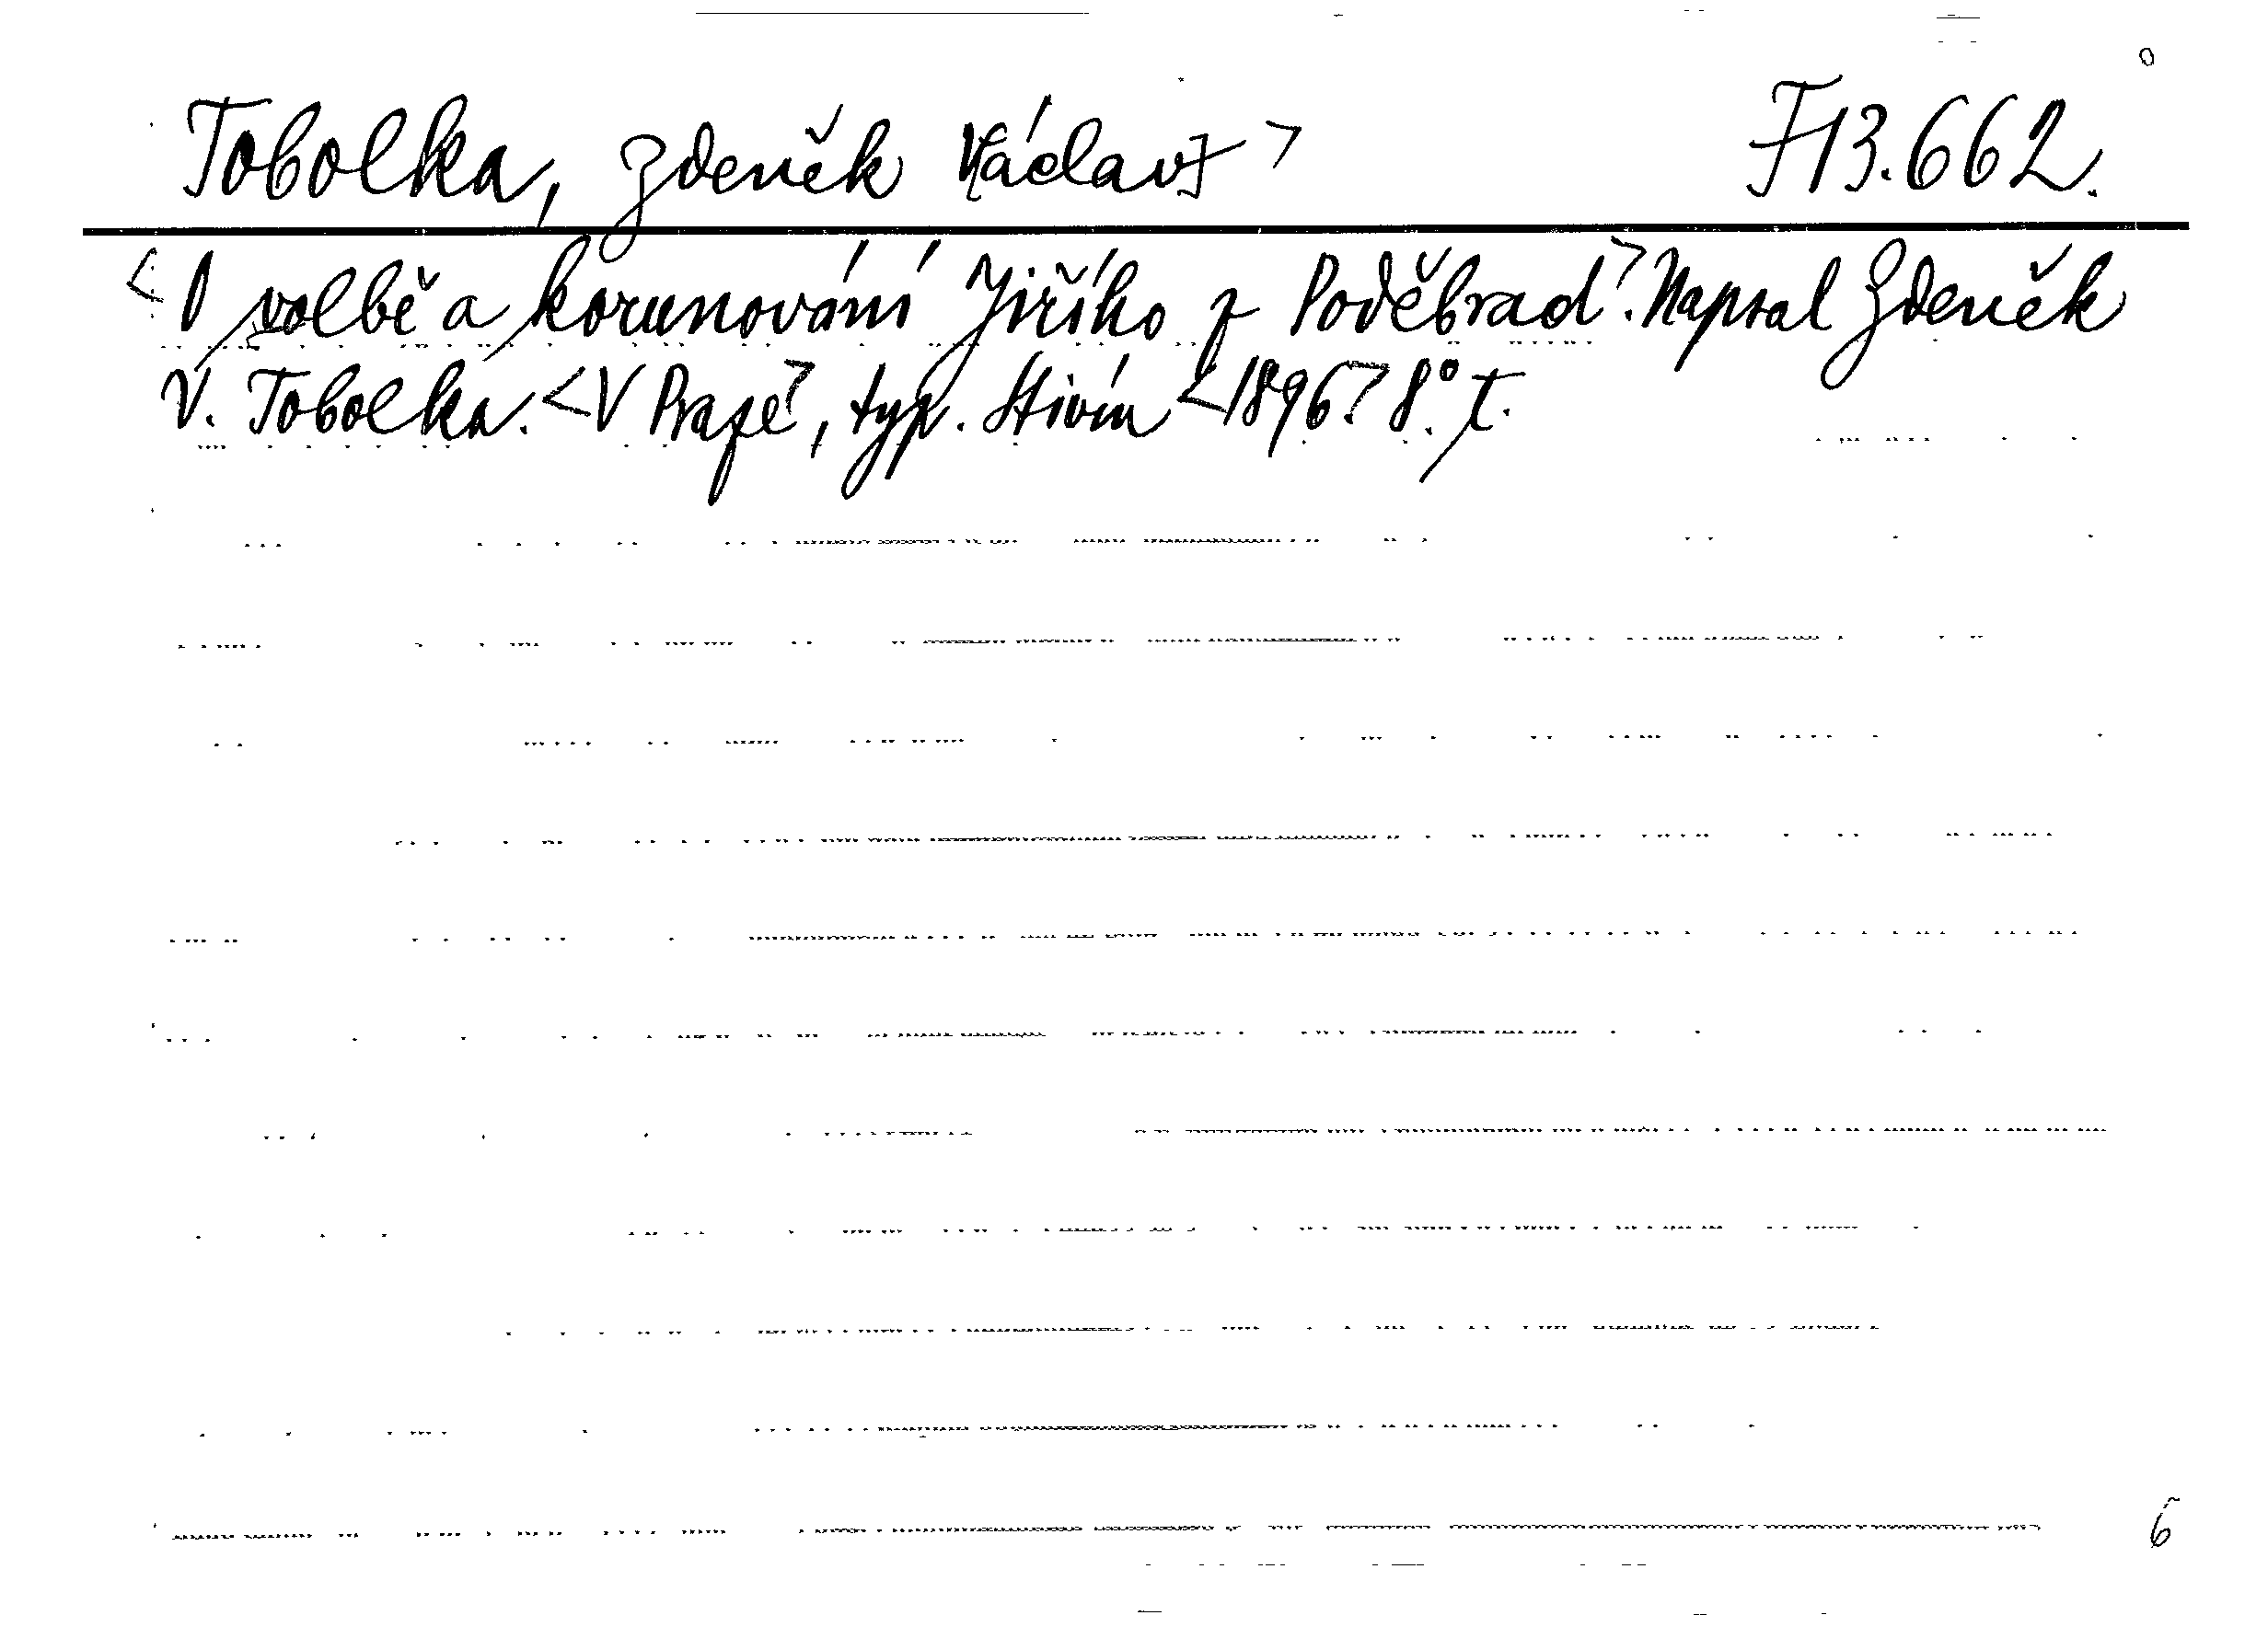 Tobolka, Zdeněk V[áclav] > F 13.662.
<O volbě a korunování Jiřího z Poděbrad>. Napsal Zdeněk
V. Tobolka. <V Praze>, typ. Stivín <1896> 8°. T.
6